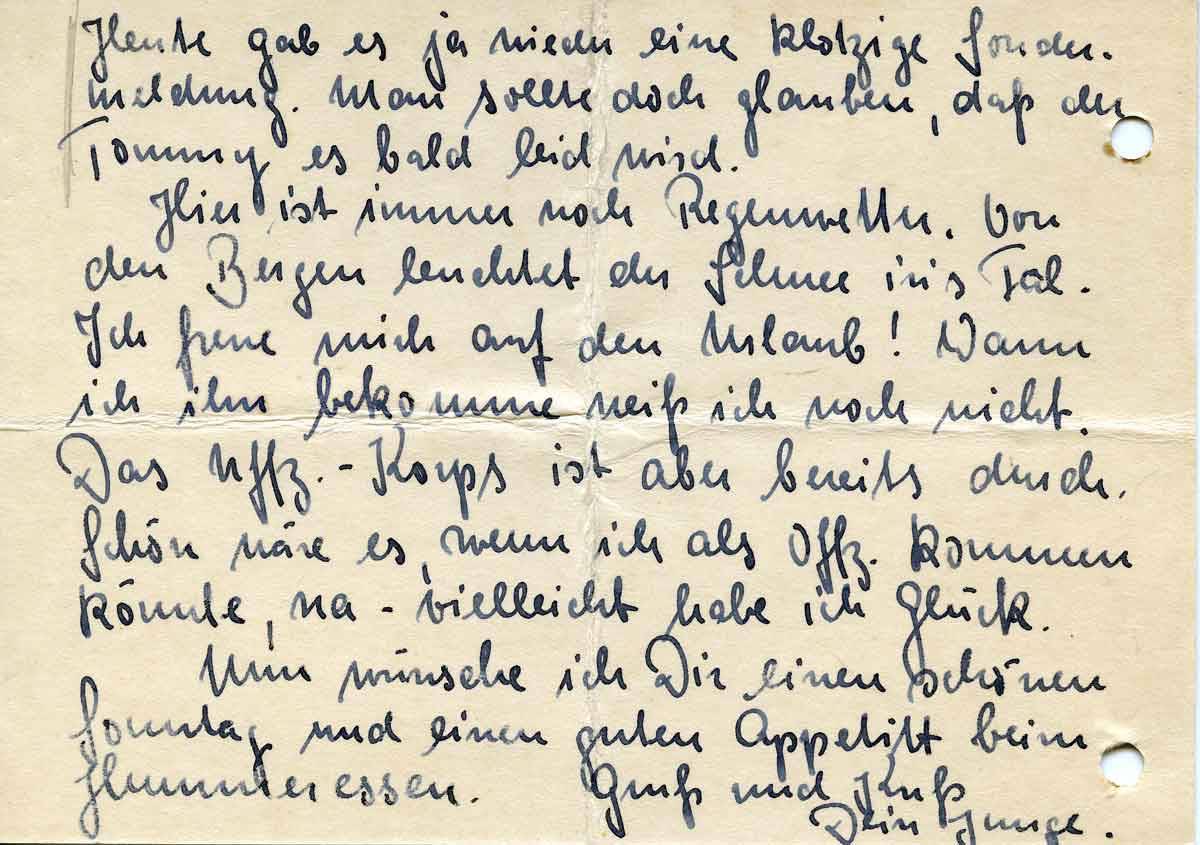 Heute gab es ja wieder eine klotzige Sonder-
meldung. Man sollte doch glauben, daß der
Tommy es bald leid wird.
Hier ist immer noch Regenwetter. Von
den Bergen leuchtet der Schnee in's Tal.
Ich freue mich auf den Urlaub! Wann
ich ihn bekomme weiß ich noch nicht.
Das Uffz.-Korps ist aber bereits durch.
Schön wäre es, wenn ich als Offz. kommen
könnte, na - vielleicht habe ich Glück.
Nun wünsche ich Dir einen schönen
Sonntag und einen guten Appetitt beim
Hummeressen. Gruß und Kuß
Dein Junge.